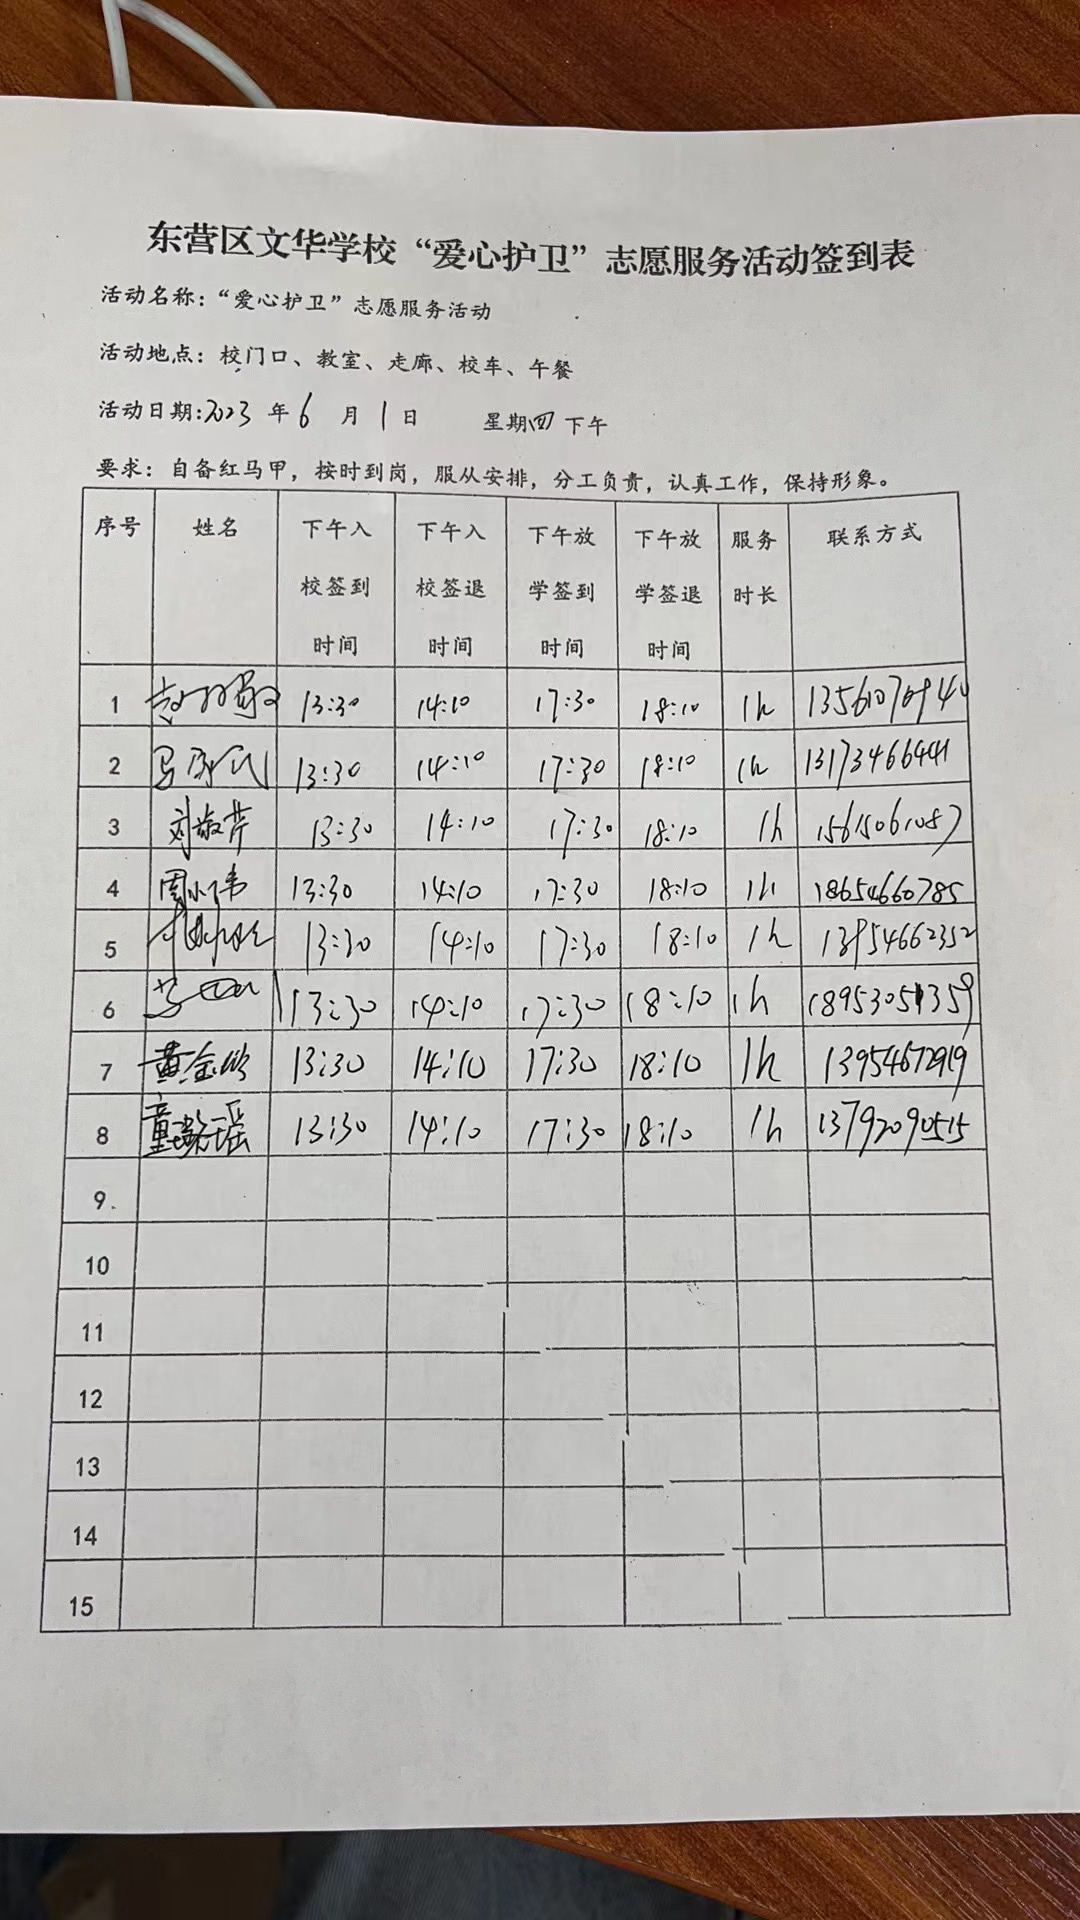 东营区文华学校“爱心护卫”志愿服务活动签到表
活动名称：“爱心护卫”志愿服务活动
活动地点：校门口、教室、走廊、校车、午餐
活动日期:2023 年 6 月 1 日 星期四 下午
要求：自备红马甲，按时到岗，服从安排，分工负责，认真工作，保持形象。
序号 姓名 下午入校签到时间 下午入校签退时间 下午放学签到时间 下午放学签退时间 服务时长 联系方式
1 13:30 14:10 17:30 18:10 1h
2 13:30 14:10 17:30 18:10 1h 13173466441
3 刘敬芹 13:30 14:10 17:30 18:10 1h 15615061087
4 周小伟 13:30 14:10 17:30 18:10 1h 18654660785
5 13:30 14:10 17:30 18:10 1h 13954662352
6 13:30 14:10 17:30 18:10 1h 18953051359
7 13:30 14:10 17:30 18:10 1h 13954672919
8 13:30 14:10 17:30 18:10 1h 13792090515
9
10
11
12
13
14
15